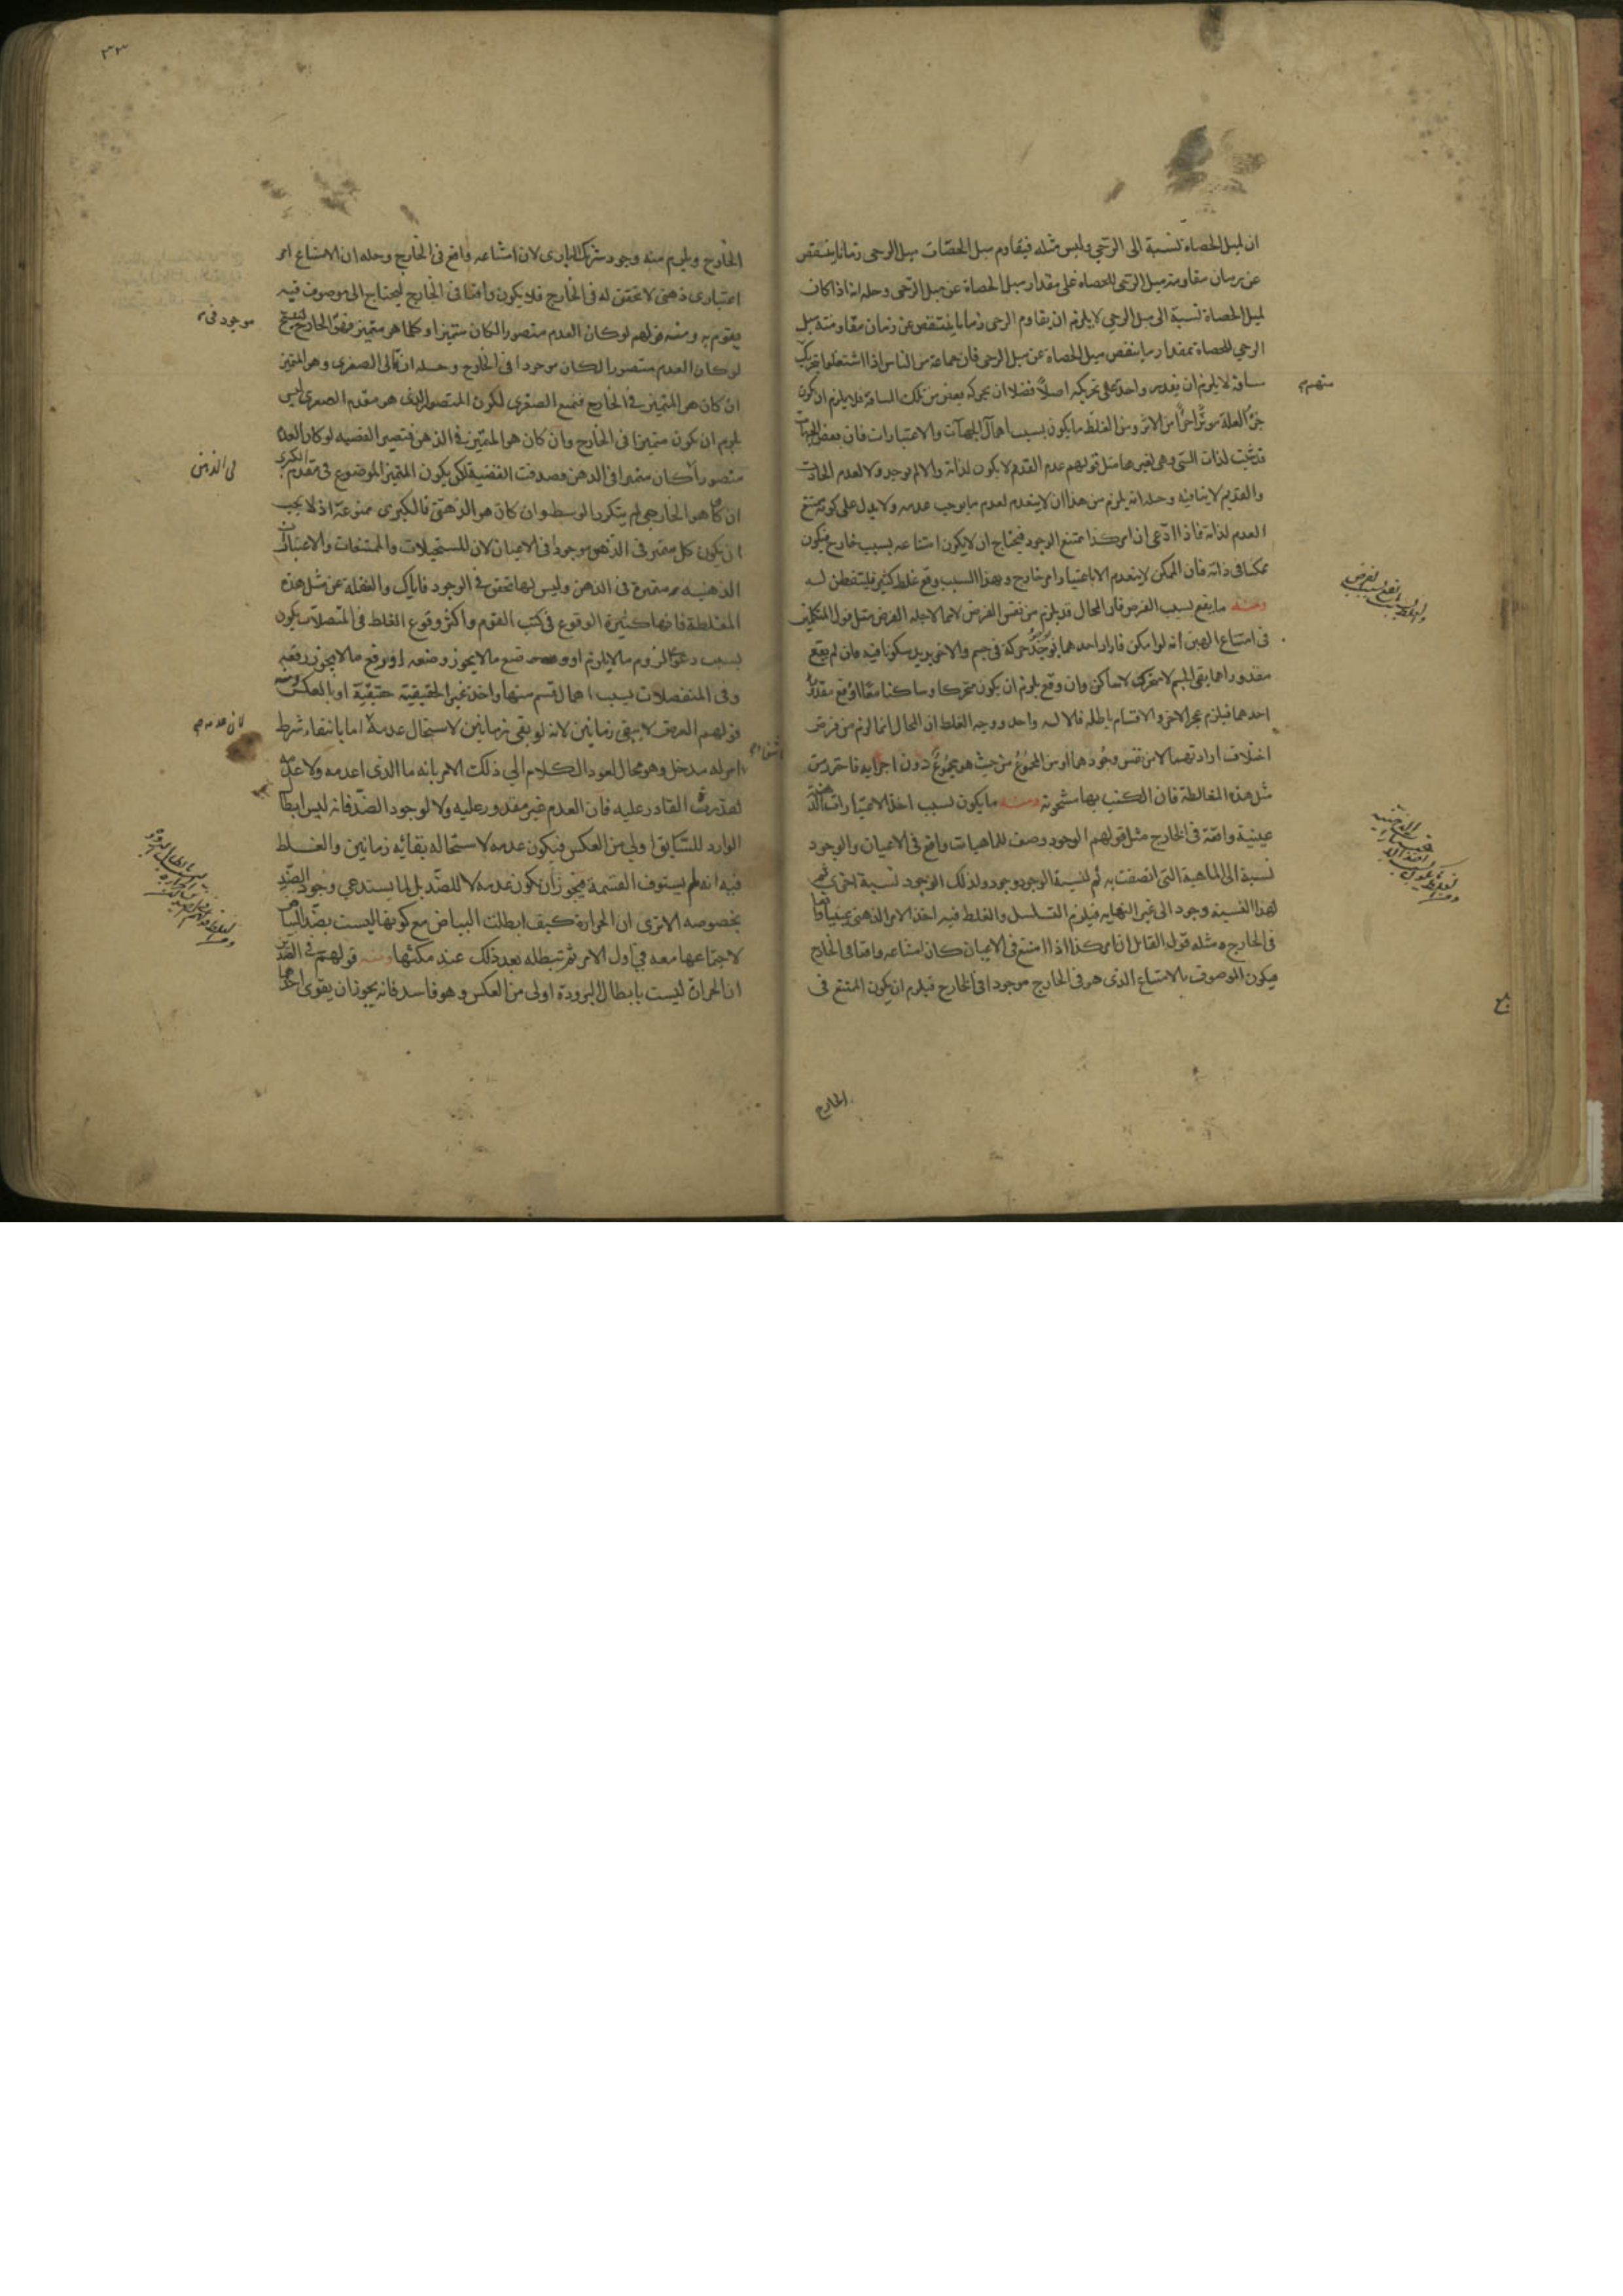 ان لميل الحصاة نسبة الى الرحي وليس مثله فيقاوم ميل الحصات ميل الرحى زمانا ينقص
عن زمان مقاومة ميل الرحى للحصاه على مقدار ميل الحصاة عن ميل الرحى وحله انه اذا كان
لميل الحصاة نسبة الى ميل الرحي لا يلزم ان يقاوم الرحى زمانا ينتقص عن زمان مقاومته ميل
الرحي للحصاة بمقدار ما ينقص ميل الحصاة عن ميل الرحى فان جماعة من الناس اذا اشتغلوا بتحريك
مسافة لا يلزم ان يقدر واحد على تحريكه اصلاً فضلا ان يحركه بعض من تلك المسافة فلا يلزم ان يكون
جزء العلة مؤثرا جزءا من الاثر ومن الغلط ما يكون بسبب اهمال الجهات والاعتبارات فان بعض الجهات
قد تثبت لذات الشي وهي لغيرها مثل قولهم عدم القدم لا يكون لذاته والا لم يوجد ولا لعدم الحادث
والقديم لا ينافيه وحله انه يلزم من هذا ان لا ينعدم لعدم ما يوجب عدمه ولا يدل على كونه ممتنع
العدم لذاته فاذا ادعى ان امر كذا ممتنع الوجود فيحتاج ان لا يكون امتناعه بسبب خارج فيكون
ممكنا في ذاته فان الممكن لا ينعدم الا باعتبار امر خارج وبهذا السبب وقع غلط كثير فليتفطن له
ومنه ما يقع بسبب الفرض فان المحال قد يلزم من نفس الفرض لا مما لاجله الفرض مثل قول المتكلمين
في امتناع الهين انه لو امكن فاراد احدهما حركة في جسم والاخر يريد سكونا فيه فان لم يقع
مقدوراهما يبقى الجسم لا متحرك لا ساكن وان وقع يلزم ان يكون متحركا وساكنا معا او وقع مقدور
احدهما فيلزم عجز الاخر والاقسام باطله فلا اله واحد ووجه الغلط ان المحال انما لزم من فرض
اختلاف ارادتهما لا من نفس وجودهما او من المجموع من حيث هو مجموع دون اجزايه فاحترز من
مثل هذه المغالطة فان الكتب بها مشحونه ومنه ما يكون بسبب اخذ الاعتبارات الذهنية
عينية واقعة في الخارج مثل قولهم الوجود وصف للماهيات واقع في الاعيان والوجود
نسبة الى الماهية التي اتصفت به ثم لنسبة الوجود وجود ولذلك الوجود نسبة اخرى ثم
لهذا النسبة وجود الى غير النهايه فيلزم التسلسل والغلط فيه اخذ الامر الذهنى عينيا واقعا
في الخارج ومثله قول القائل ان امر كذا اذا امتنع في الاعيان كان امتناعه واقعا في الخارج
فيكون الموصوف بالامتناع الذى هو في الخارج موجودا في الخارج فيلزم ان يكون الممتنع في
الخارج
الخارج ويلزم منه وجود شريك البارى لان امتناعه واقع في الخارج وحله ان الامتناع امر
اعتبارى ذهنى لا تحقق له في الخارج فلا يكون واقعا في الخارج ليحتاج الى موصوف فيه
يقوم به ومنه قولهم لو كان العدم متصورا لكان متميزا وكلما هو متميز فهو الخارج ينتج
موجود في
لو كان العدم متصورا لكان موجودا في الخارج وحله ان تالى الصغرى وهو المتميز
ان كان هو المتميز في الخارج فنمنع الصغرى لكون المتصور الذى هو مقدم الصغرى ليس
يلزم ان يكون متميزا في الخارج وان كان هو المتميز في الذهن فتصير القضيه لو كان العدم
متصورا لكان متميزا في الذهن فصدقت القضية لكن يكون المتميز الموضوع في مقدم الكبرى
في الذهن
ان كان هو الخارجي لم يتكرر الوسط وان كان هو الذهني فالكبرى ممنوعة اذ لا يجب
ان يكون كل متميز في الذهن موجودا في الاعيان لان للمستحيلات والممتنعات والاعتبارات
الذهنيه متميزة في الذهن وليس لها تحقق في الوجود فاياك والغفلة عن مثل هذه
المغلطة فانها كثيرة الوقوع في كتب القوم واكثر وقوع الغلط في المتصلات يكون
بسبب دعوى لزوم ما لا يلزم او وضع ما لا يجوز وضعه او رفع ما لا يجوز رفعه
وفي المنفصلات بسبب اهمال قسم منها واخذ غير الحقيقية حقيقية او بالعكس ومنه
قولهم العرض لا يبقى زمانين لانه لو بقى زمانين لاستحال عدمه اما بانتفاء شرط
او له مدخل وهو محال لعود الكلام الي ذلك الامر بانه ما الذى اعدمه ولا عدمه
لقدرة القادر عليه فان العدم غير مقدور عليه ولا لوجود الضد فانه ليس ابطال
الوارد للسابق اولي من العكس فيكون عدمه لاستحاله بقائه زمانين والغلط
فيه انه لم يستوف القسمة فيجوز ان يكون عدمه لا للضد بل لما يستدعي وجود الضد
بخصوصه الا ترى ان الحرارة كيف ابطلت البياض مع كونها ليست بضد البياض
لاجتماعها معه في اول الامر ثم تبطله بعد ذلك عند مكثها ومنه قولهم في الضدين
ان الحرارة ليست بابطال البرودة اولى من العكس وهو فاسد فانه يجوز ان يقوى احدهما